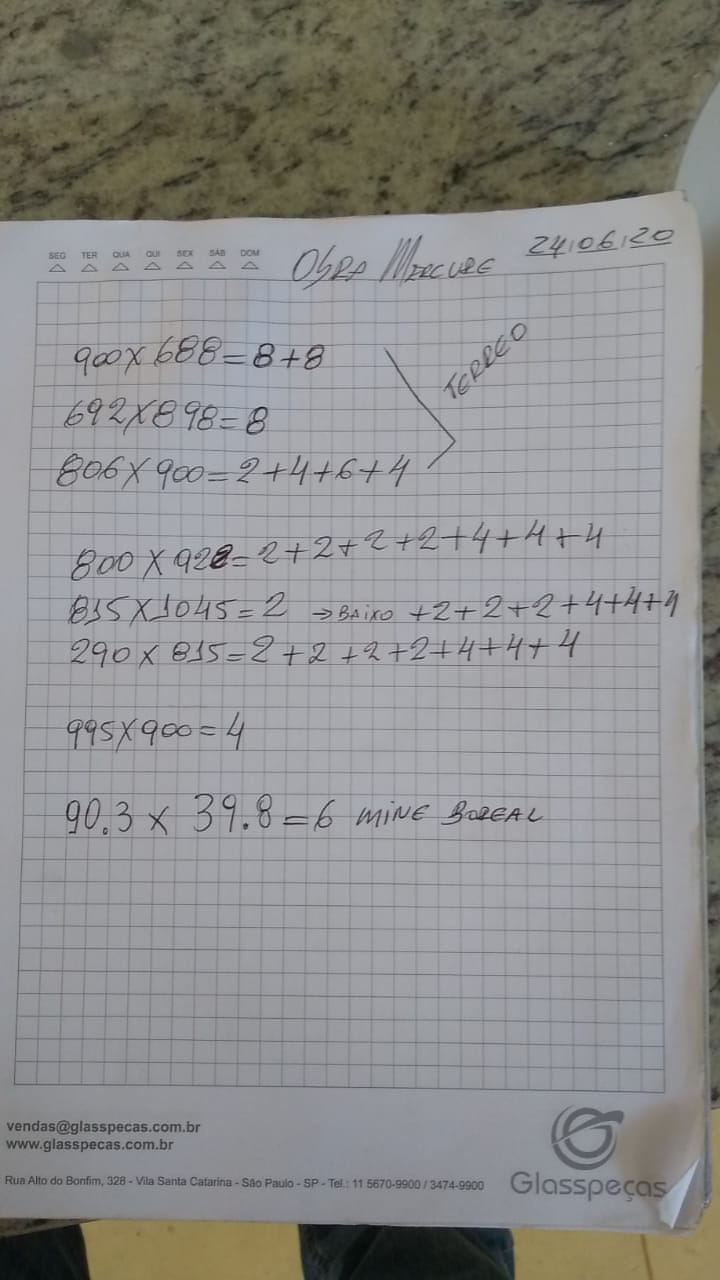 SEG TER QUA QUI SEX SÁB DOM
Obra Mercure 24/06/20
900 x 688 = 8 + 8
692 x 898 = 8
TERREO
806 x 900 = 2 + 4 + 6 + 4
800 x 922 = 2 + 2 + 2 + 2 + 4 + 4 + 4
815 x 1045 = 2 → BAIXO + 2 + 2 + 2 + 4 + 4 + 4
290 x 815 = 2 + 2 + 2 + 2 + 4 + 4 + 4
995 x 900 = 4
90.3 x 39.8 = 6 MINE BOREAL
vendas@glasspecas.com.br
www.glasspecas.com.br
Rua Alto do Bonfim, 328 - Vila Santa Catarina - São Paulo - SP - Tel.: 11 5670-9900 / 3474-9900
Glasspeças